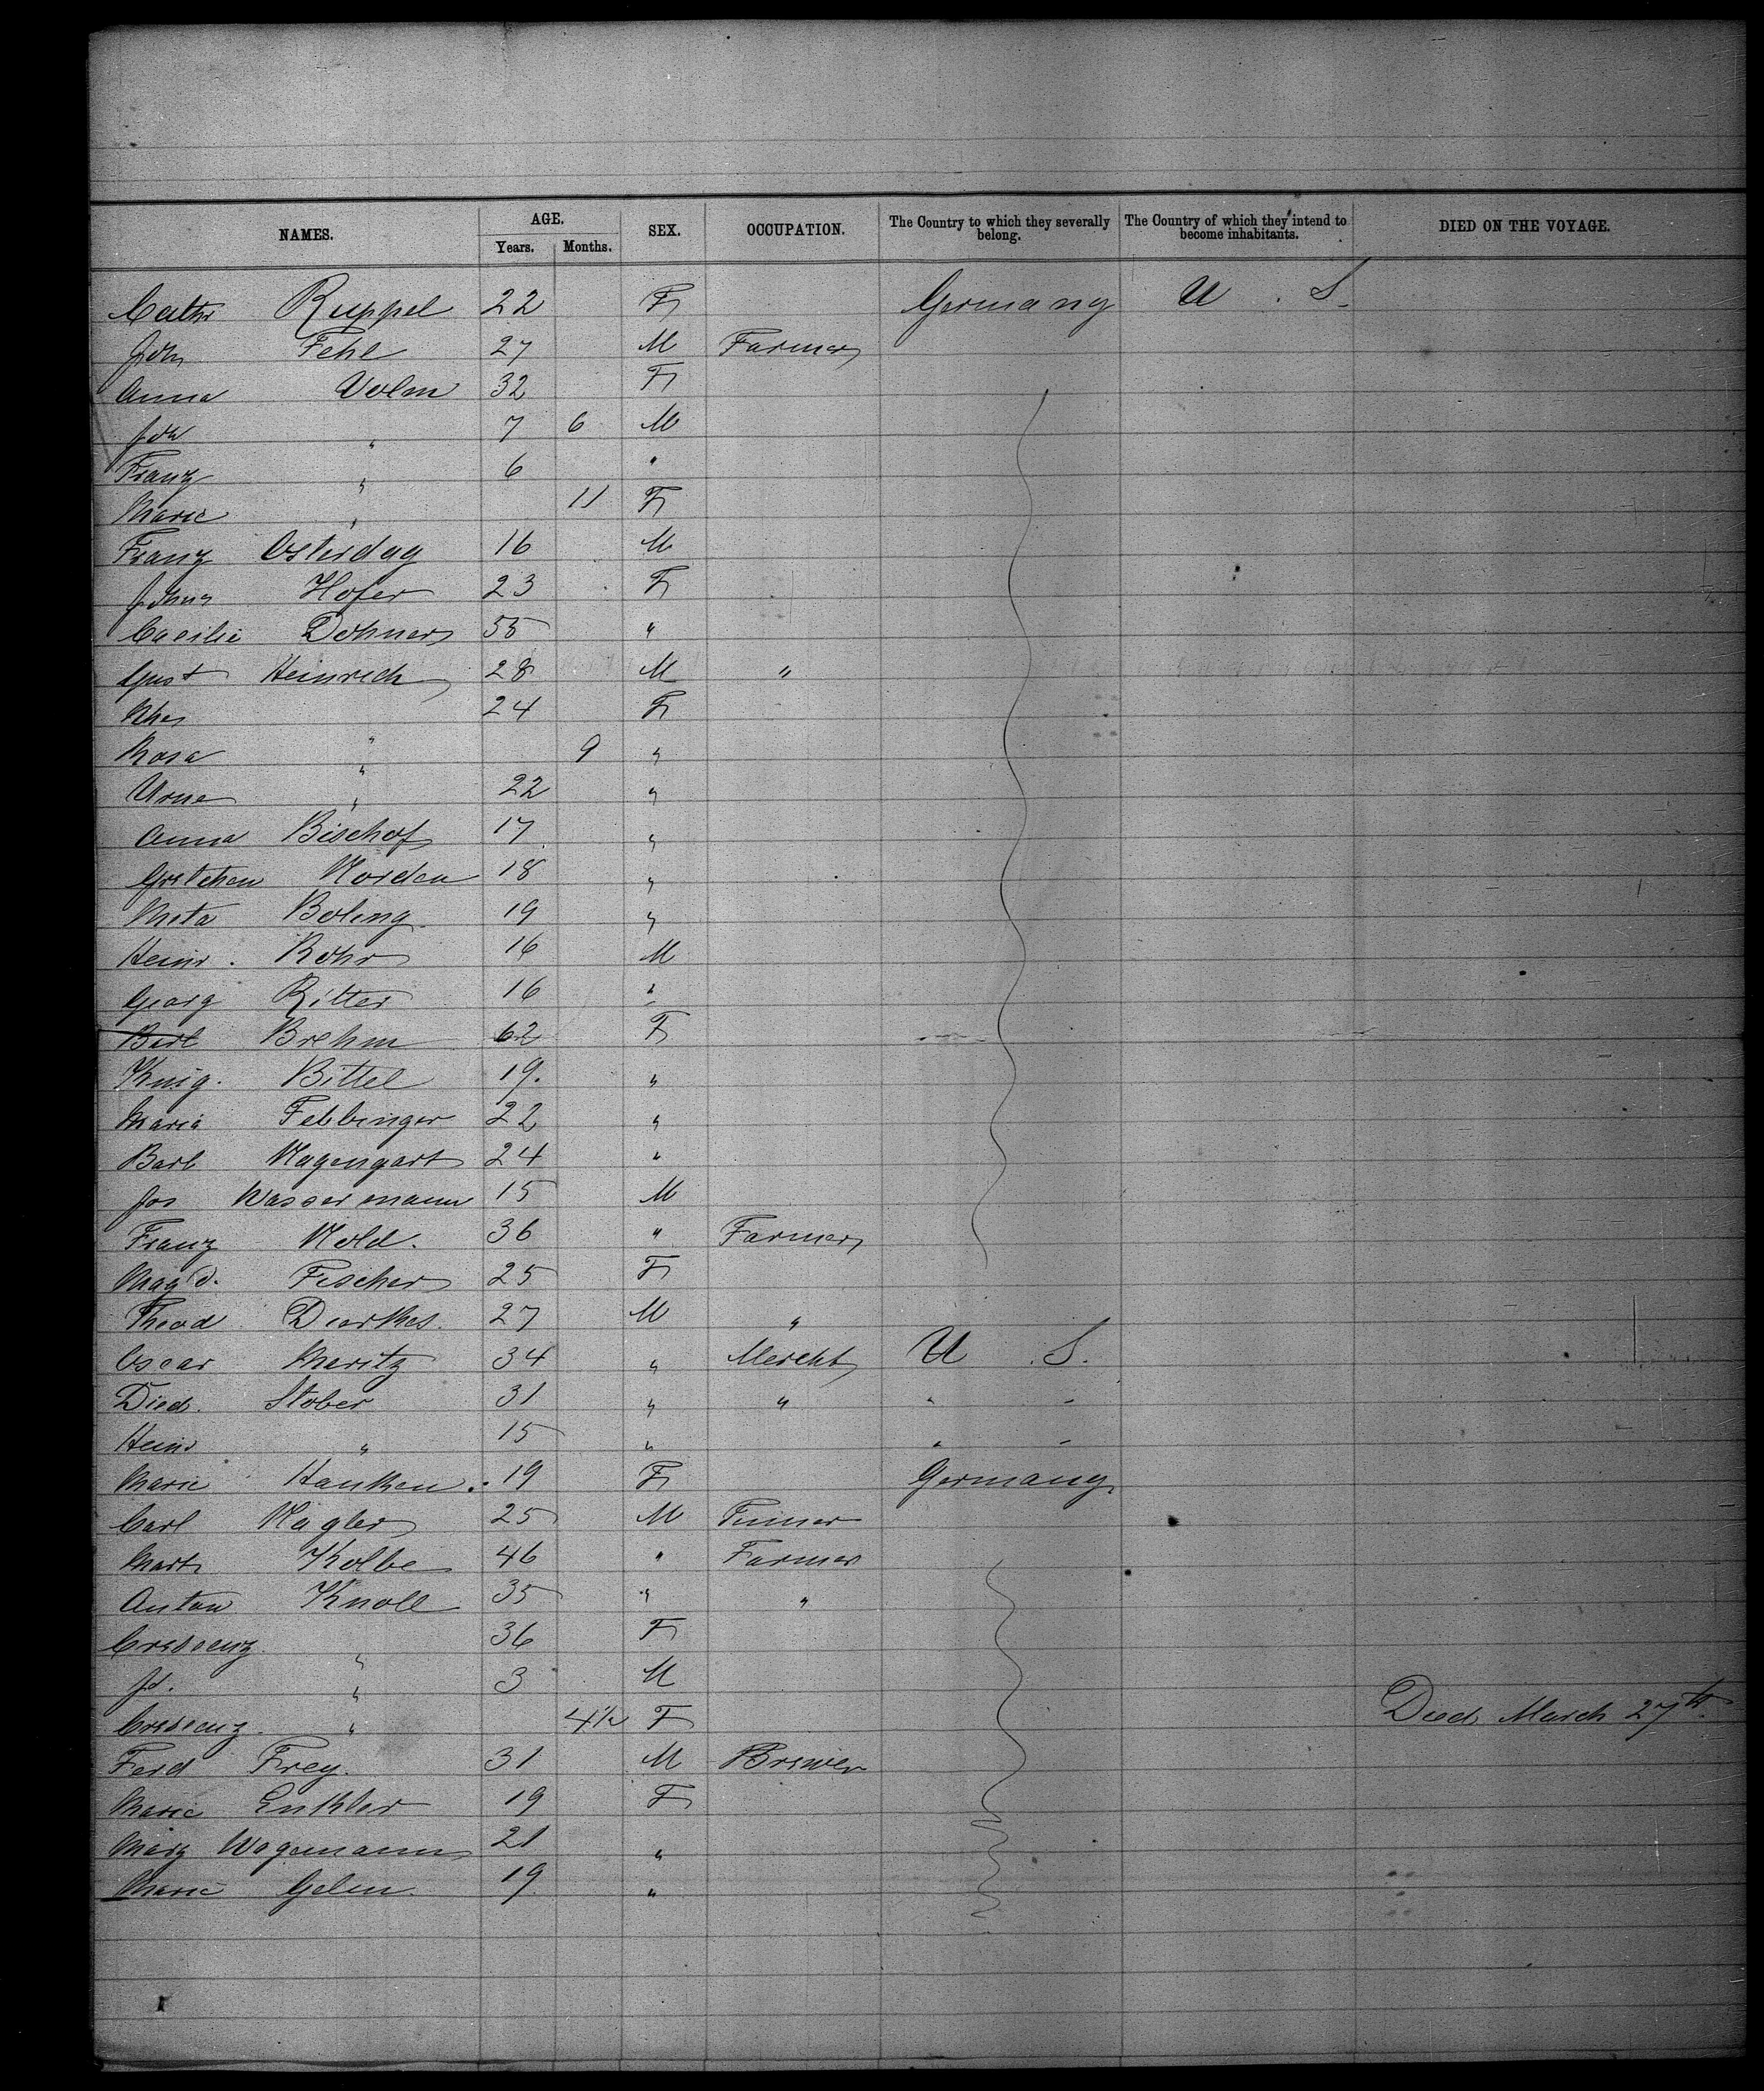 NAMES. AGE. SEX. OCCUPATION. The Country to which they severally belong. The Country of which they intend to become inhabitants. DIED ON THE VOYAGE.
Years. Months.
Cathr Ruppel 22 F Germany U. S.
Joh Fehl 27 M Farmer
Anna Volm 32 F
Joh " 7 6 M
Franz " 6 "
Marie " 11 F
Franz Osterdag 16 M
Hofer 23 F
Caecilie Dohner 55 "
Gust Heinrich 28 M "
24 F
Rosa " 9 "
" 22 "
Anna Bischof 17 "
Gretchen Norden 18 "
Meta Boling 19 "
Heinr. Rohr 16 M
Georg Ritter 16 "
Barb Brehm 62 F
Kuig. Bittel 19. "
Maria Febbinger 22 "
Barb Nagengart 24 "
Jos Wassermann 15 M
Franz Nold. 36 " Farmer
Magd. Fischer 25 F
Theod Dierkes. 27 M "
Oscar Moritz 34 " Mercht U. S.
Died. Stober 31 " " " "
Heinr " 15 " " "
Marie Hanken. 19 F Germany
Carl Nagler 25 M
Mart Kolbe 46 " Farmer
Anton Knoll 35 " "
Crescenz " 36 F
Jo. " 3 M
Crescenz. " 4½ F Died March 27th.
Ferd Frey. 31 M Brewer
Marie Enkler 19 F
Marg Wagemann 21 "
Marie Gelen. 19 "